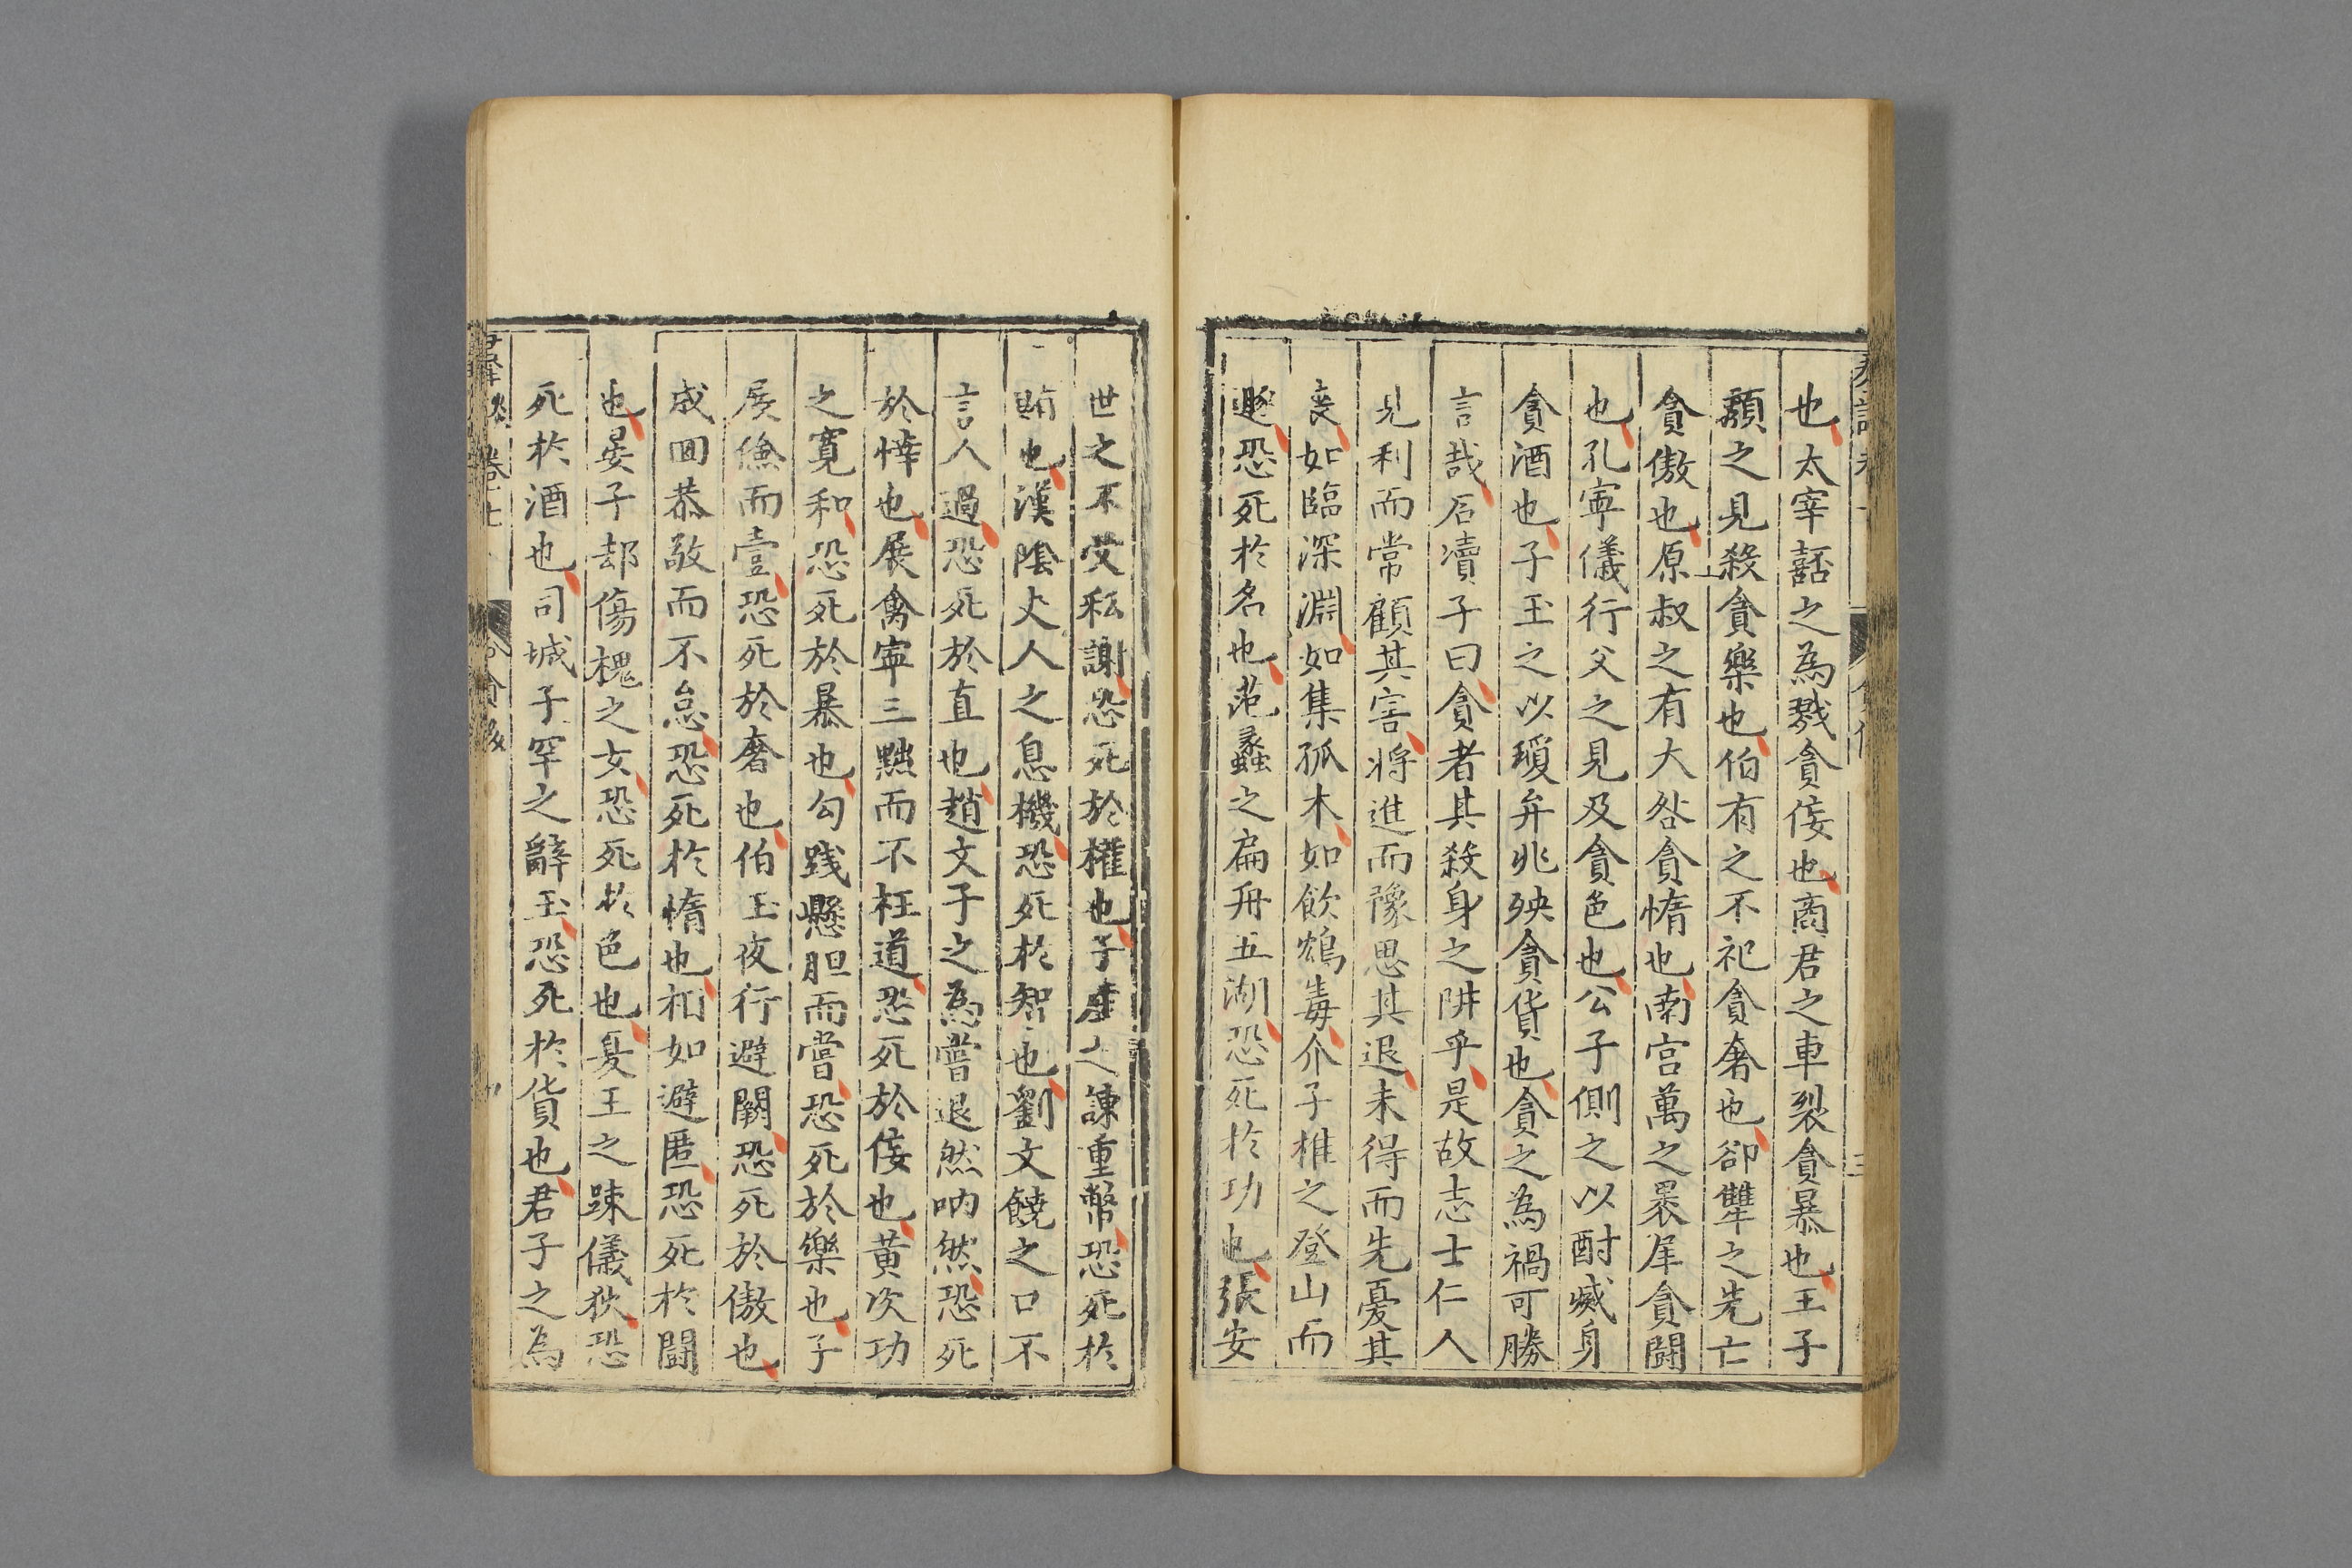 也太宰嚭之為戮貪佞也商君之車裂貪暴也王子
頹之見殺貪樂也伯有之不祀貪奢也卻犨之先亡
貪傲也原叔之有大咎貪惰也南宮萬之罴犀貪鬪
也孔寧儀行父之見及貪色也公子側之以酎臧身
貪酒也子玉之以瓊弁兆殃貪貨也貪之為禍可勝
言哉石凟子曰貪者其殺身之阱乎是故志士仁人
見利而常顧其害將進而豫思其退未得而先憂其
喪如臨深淵如集孤木如飲鴆毒介子椎之登山而
遯恐死於名也范蠡之扁舟五湖恐死於功也張安
世之不受私謝恐死於權也子產之諫重幣恐死於
賄也漢陰丈人之息機恐死於智也劉文饒之口不
言人過恐死於直也趙文子之為嘗退然吶然恐死
於悻也展禽寧三黜而不枉道恐死於佞也黃次功
之寬和恐死於暴也勾踐懸胆而嘗恐死於樂也子
展儉而壹恐死於奢也伯玉夜行避闕恐死於傲也
成回恭敬而不怠恐死於惰也相如避匿恐死於鬪
也晏子却傷槐之女恐死於色也夏王之疎儀狄恐
死於酒也司城子罕之辭玉恐死於貨也君子之為
卷七